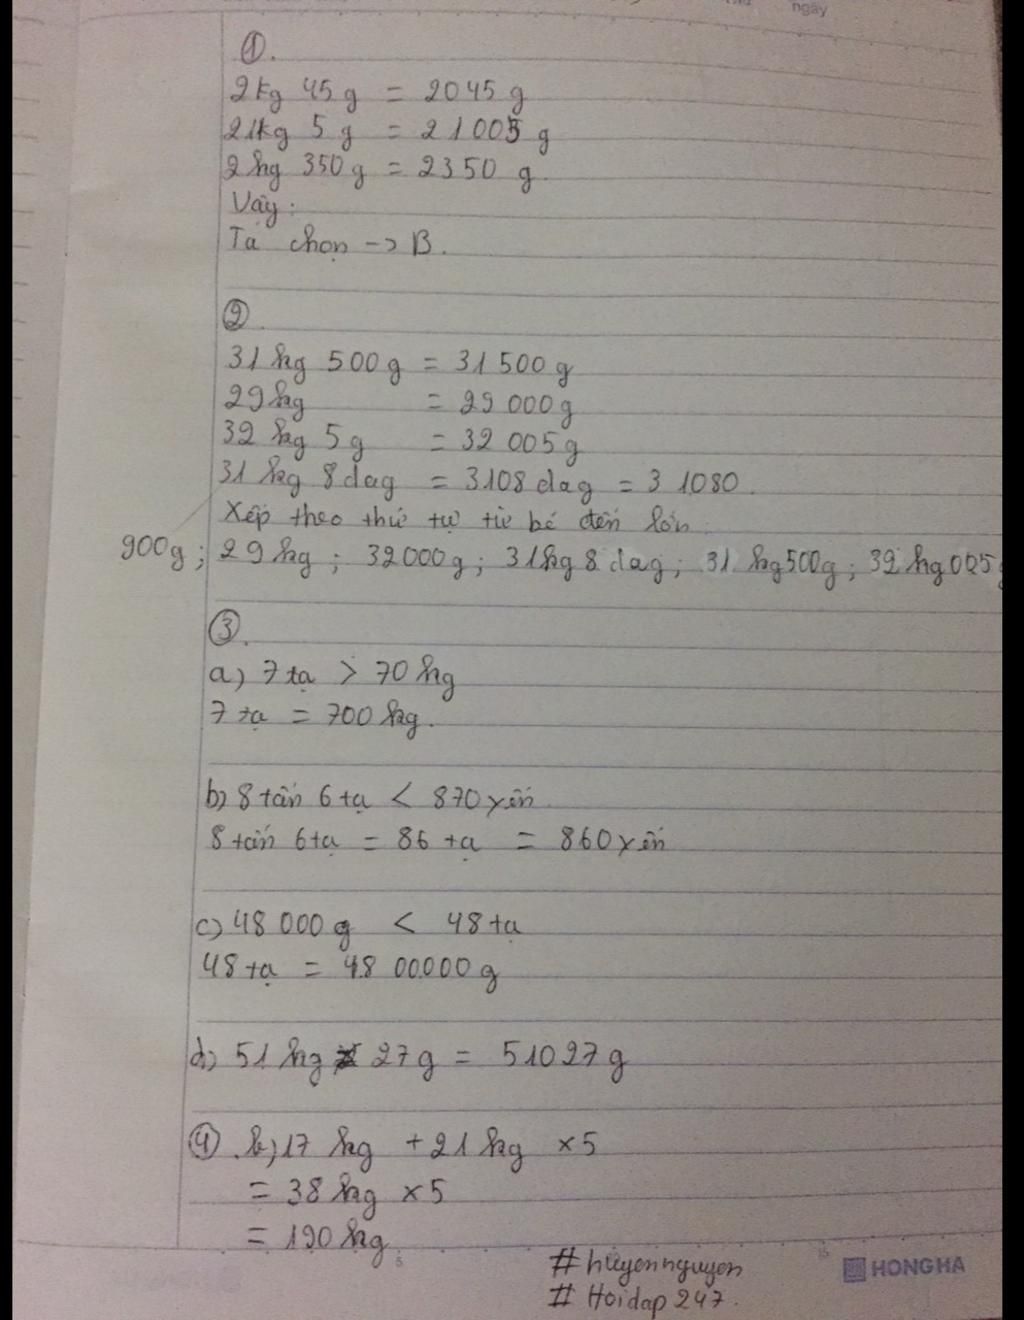 ngày
①.
2kg 45g = 2045g
21kg 5g = 21005g
2kg 350g = 2350g.
Vậy:
Ta chọn -> B.
②
31kg 500g = 31500g
29kg = 29000g
32kg 5g = 32005g
31kg 8dag = 3108dag = 31080.
Xếp theo thứ tự từ bé đến lớn:
900g; 29kg; 32000g; 31kg 8dag; 31kg500g; 32kg005g
③.
a) 7 tạ > 70kg
7 tạ = 700kg.
b) 8 tấn 6 tạ < 870 yến.
8 tấn 6 tạ = 86 tạ = 860 yến
c) 48 000g < 48 tạ
48 tạ = 4800000g
d) 51kg 27g = 51027g
④. b) 17kg + 21kg x 5
= 38kg x 5
= 190kg.
#huyennguyen
HONG HA
# Hoidap247.